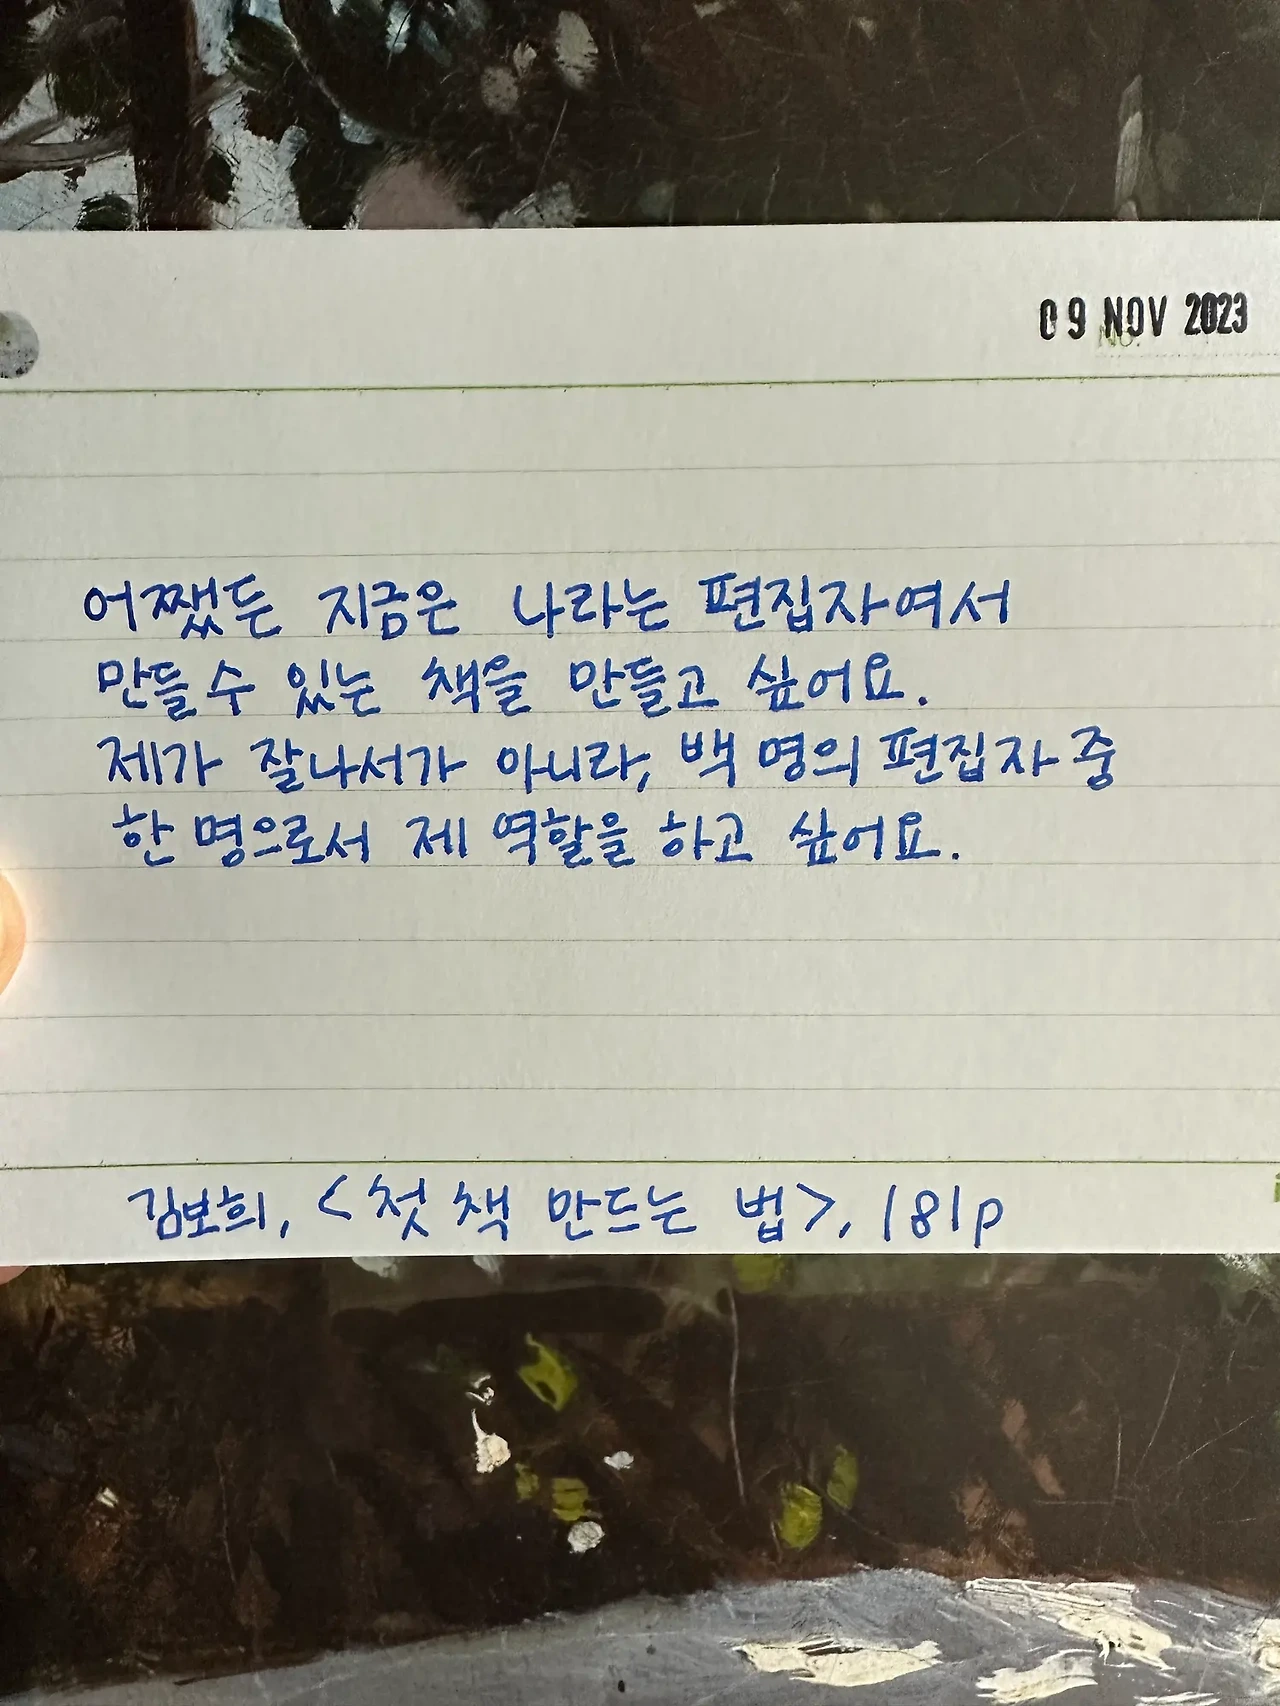 09 NOV 2023
No.
어쨌든 지금은 나라는 편집자여서
만들 수 있는 책을 만들고 싶어요.
제가 잘나서가 아니라, 백 명의 편집자 중
한 명으로서 제 역할을 하고 싶어요.
김보희, <첫 책 만드는 법>, 181p